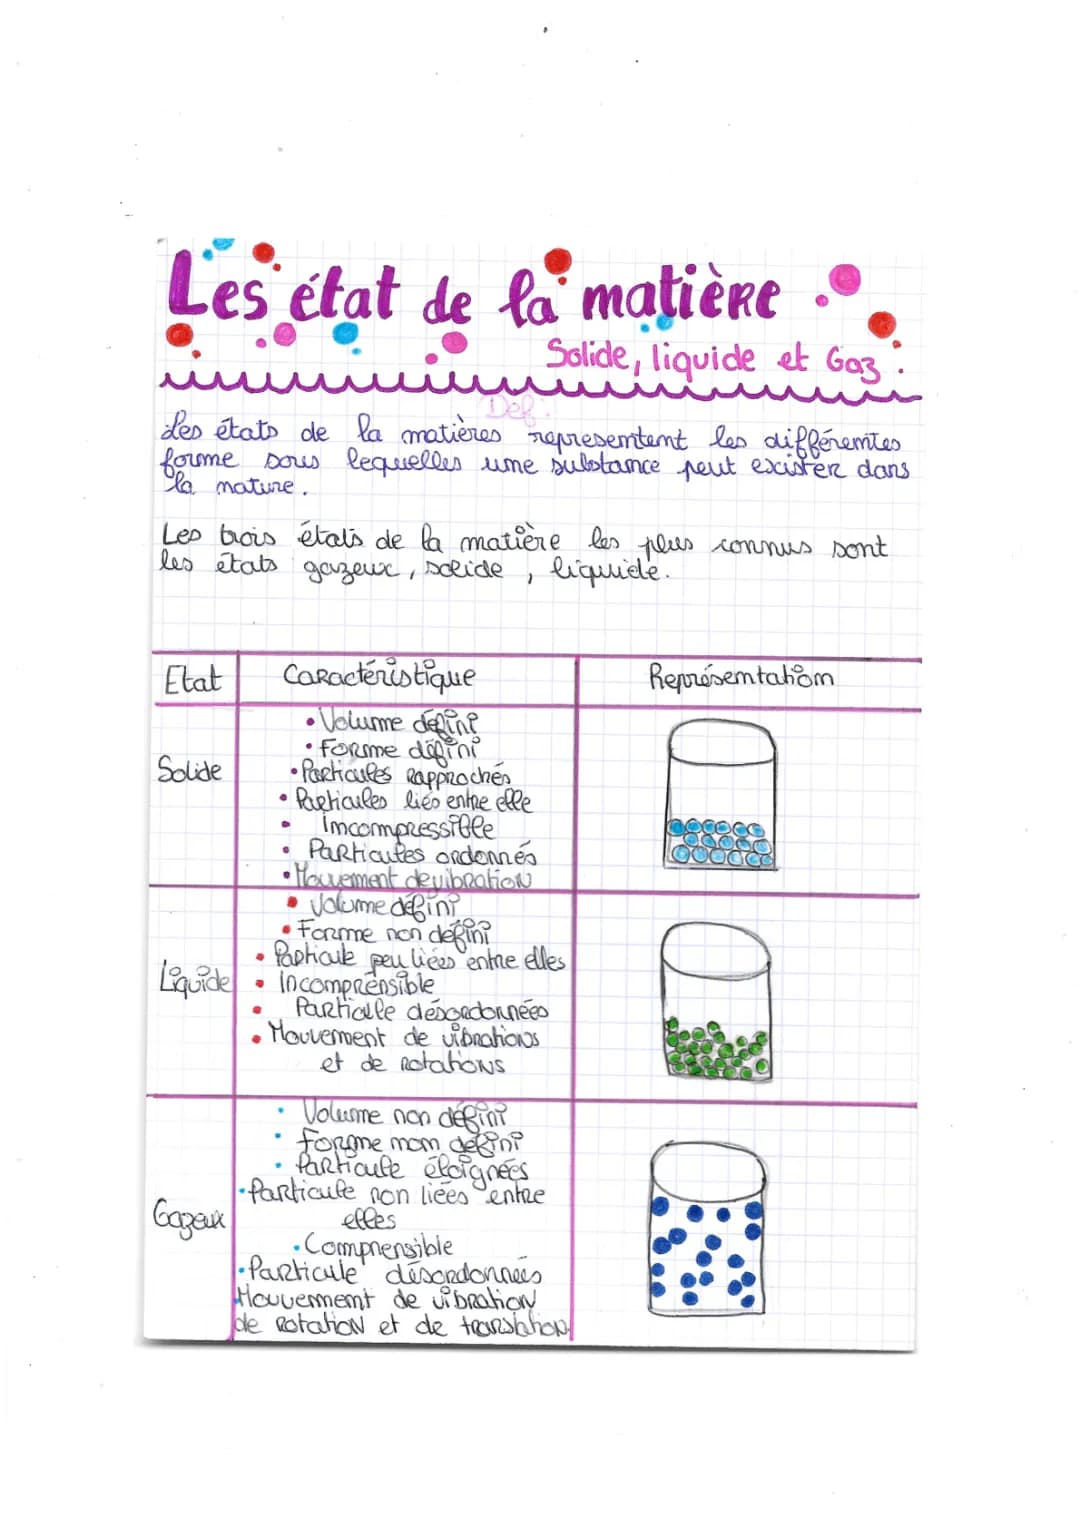 Les état de la matière
Solide, liquide et Gaz.
Def :
Les états de la matières representent les différentes
forme sous lequelles une substance peut exister dans
la nature.
Les trois états de la matière les plus connus sont
les états gazeux, solide, liquide.
Etat
Caractéristique
Représentation
Solide
• Volume défini
• Forme défini
• Particules rapprochés
• Particules liés entre elle
• Imcompressible
• Particules ordonnés
• Mouvement de vibration
Liquide
• Volume défini
• Forme non défini
• Particule peu liées entre elles
• Incomprensible
• Particule désordonnées
• Mouvement de vibrations
et de rotations
Gazeux
• Volume non défini
• Forme non défini
• Particule éloignées
• Particule non liées entre
elles
• Comprensible
• Particule désordonnées
Mouvement de vibration
de rotation et de translation